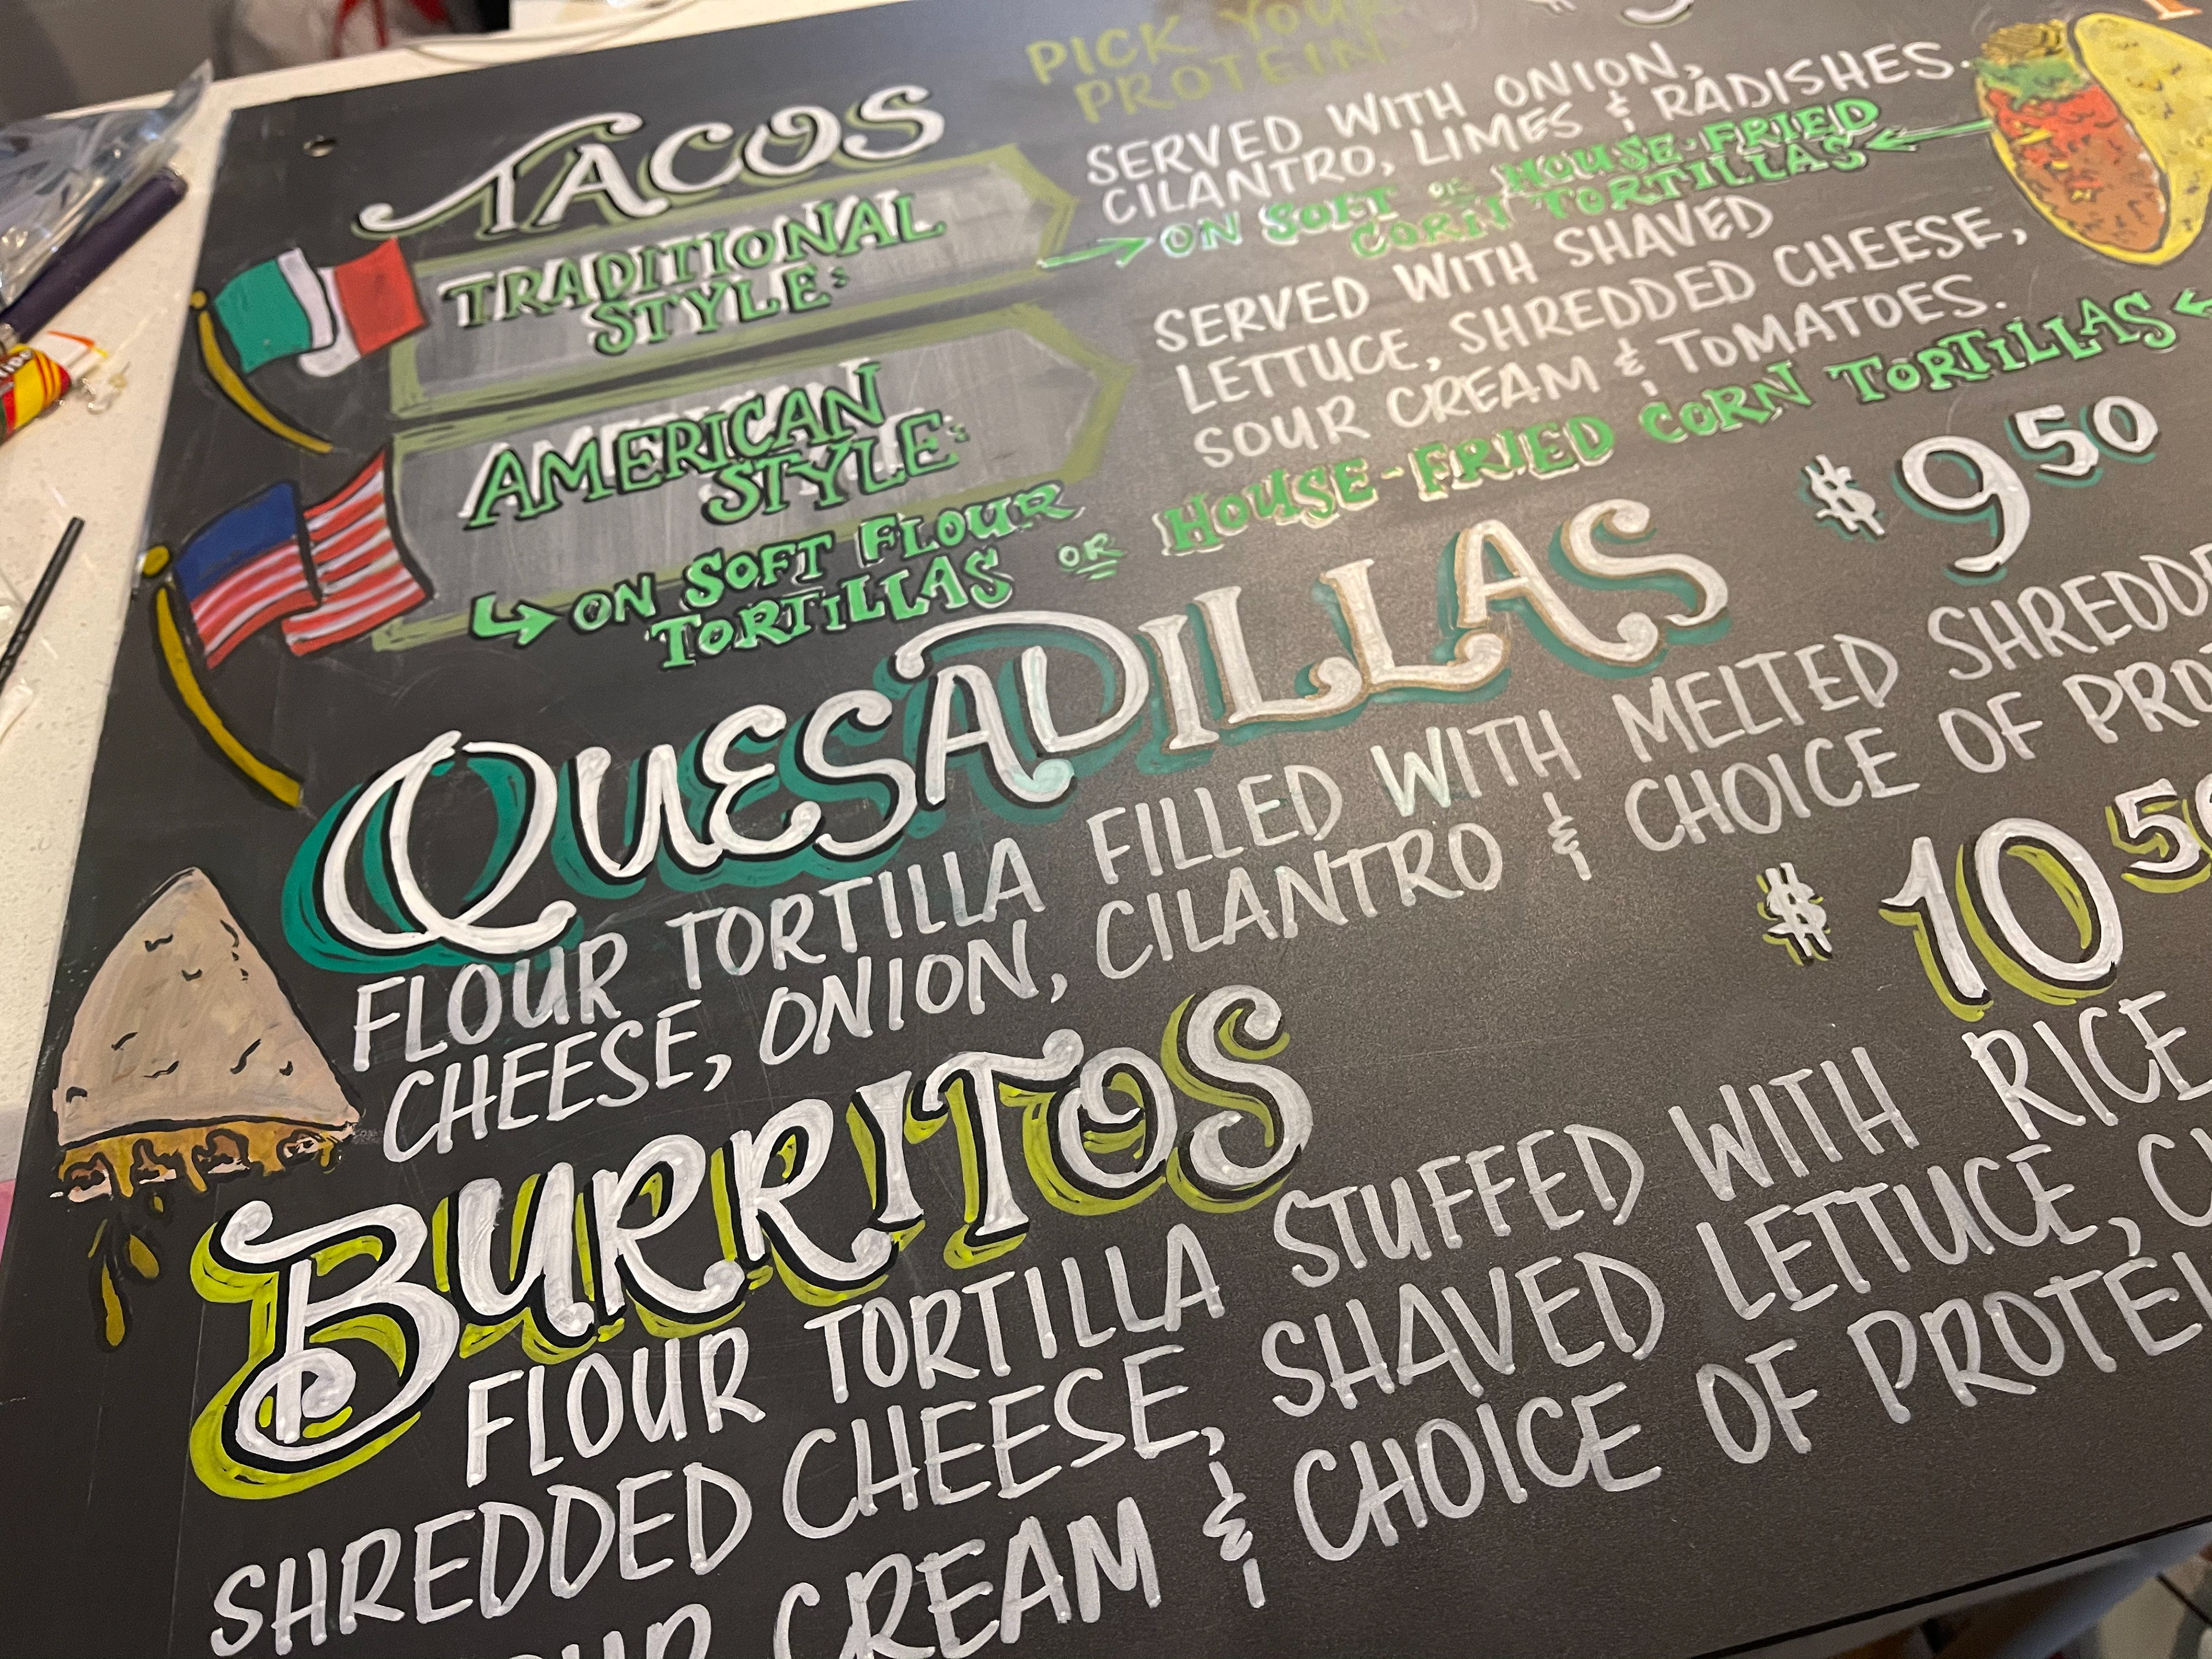 PICK YOUR
PROTEIN
TACOS
TRADITIONAL
STYLE:
SERVED WITH ONION,
CILANTRO, LIMES & RADISHES.
ON SOFT OR HOUSE-FRIED
CORN TORTILLAS
AMERICAN
STYLE:
SERVED WITH SHAVED
LETTUCE, SHREDDED CHEESE,
SOUR CREAM & TOMATOES.
ON SOFT FLOUR
TORTILLAS OR HOUSE-FRIED CORN TORTILLAS
QUESADILLAS $9.50
FLOUR TORTILLA FILLED WITH MELTED
CHEESE, ONION, CILANTRO & CHOICE OF
BURRITOS $10
FLOUR TORTILLA STUFFED WITH RICE
SHREDDED CHEESE, SHAVED LETTUCE,
CREAM & CHOICE OF